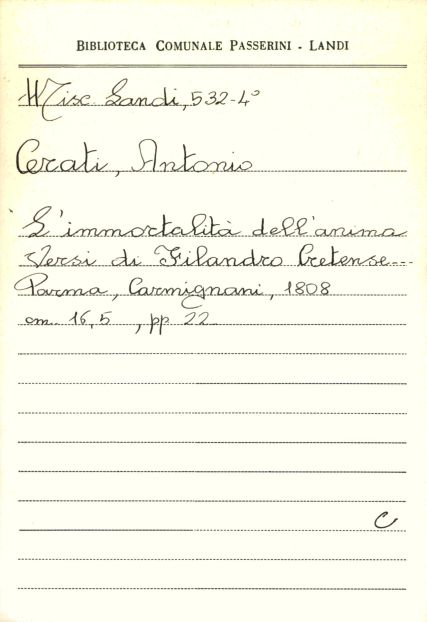 BIBLIOTECA COMUNALE PASSERINI - LANDI
Misc. Landi, 532-4°
Cerati, Antonio
L'immortalità dell'anima
Versi di Filandro Cretense...
Parma, Carmignani, 1808
cm. 16,5 , pp 22
C